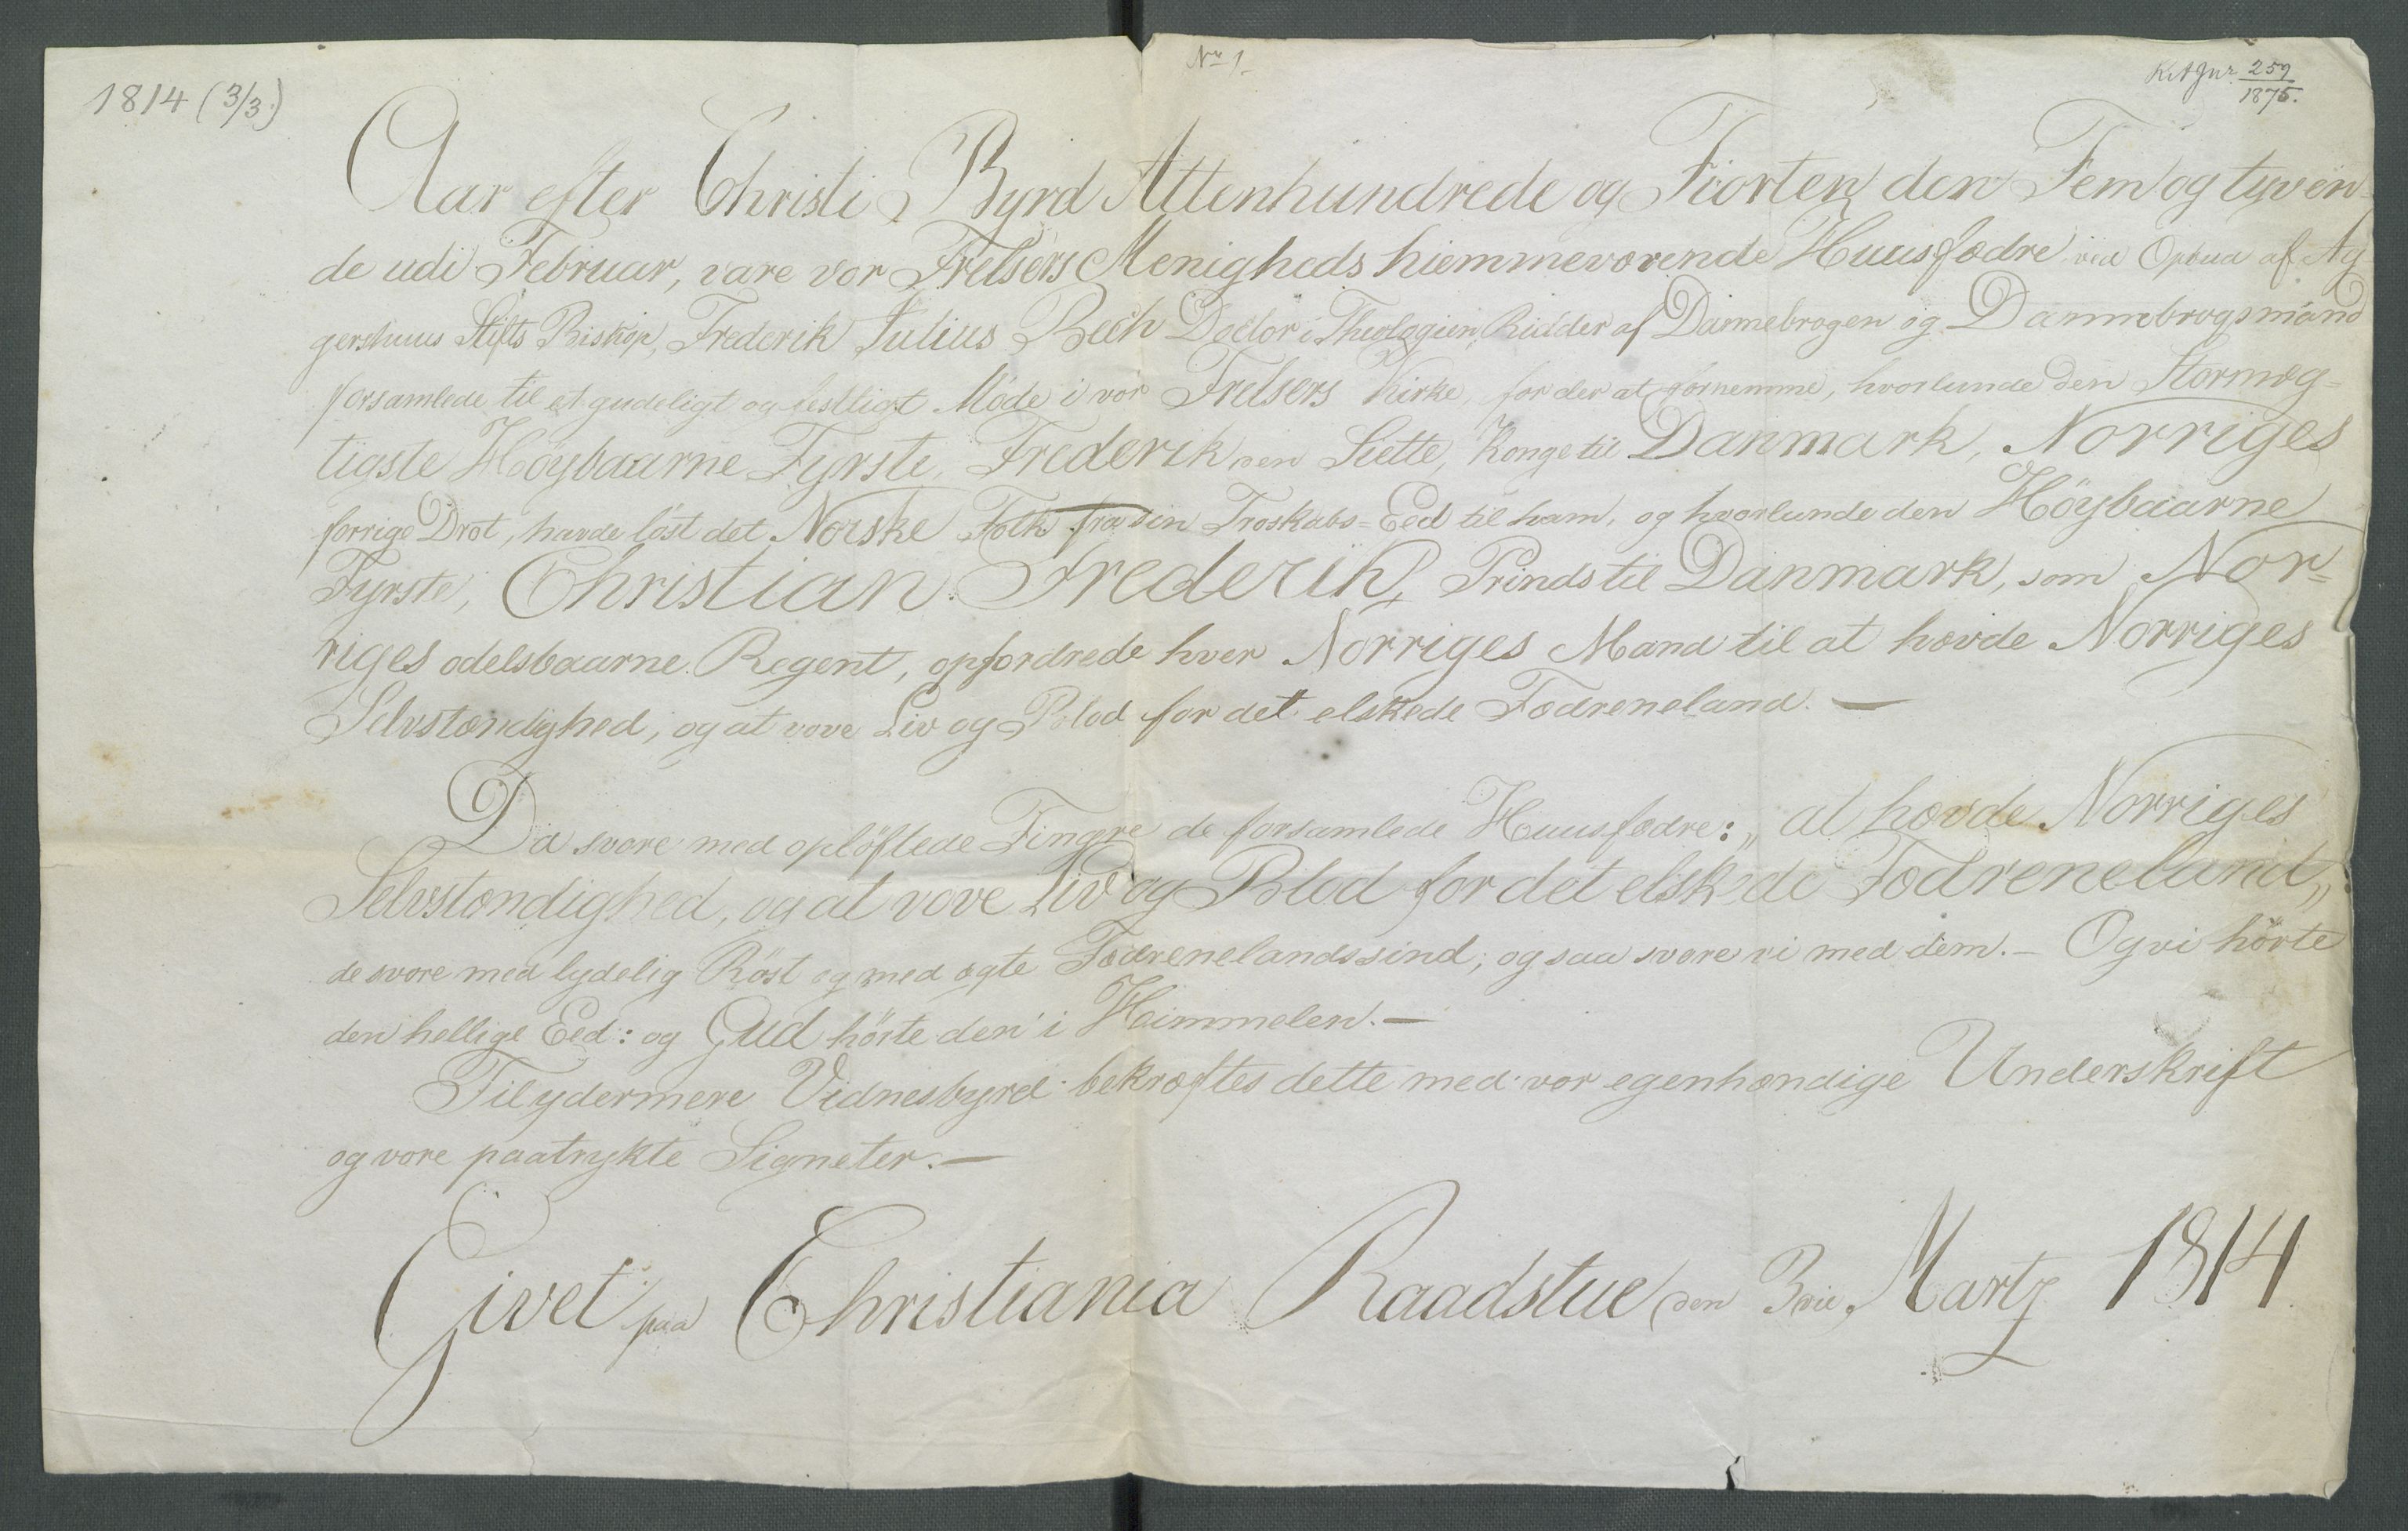 1814 (3/3.)
No 1.
K.A Jnr. 259/1875.
Aar efter Christi Byrd Attenhundrede og Fiorten den Fem og tyven=
de udi Februar, vare vor Frelsers Menigheds hiemmeværende Huusfædre ved Opbud af Ag
gershuus Stifts Biskop, Frederik Julius Bech Doctor i Theologien, Ridder af Dannebrogen og Dannebrogsmand
forsamlede til et gudeligt og festligt Møde i vor Frelsers Kirke, for der at fornemme, hvorlunde den Stormæg=
tigste Høybaarne Fyrste, Frederik den Siette, Konge til Danmark, Norriges
forrige Drot, havde løst det Norske Folk fra sin Troskabs=Eed til ham, og hvorlunde den Høybaarne
Fyrste, Christian Frederik, Prinds til Danmark, som Nor=
riges odelsbaarne Regent, opfordrede hver Norriges Mand til at hævde Norriges
Selvstændighed, og at vove Liv og Blod for det elskede Fædreneland. —
Da svore med opløftede Fingre de forsamlede Huusfædre: „at hævde Norriges
Selvstændighed, og at vove Liv og Blod for det elskede Fædreneland„
de svore med lydelig Røst og med ægte Fædrenelandssind; og saa svore vi med dem. — Og vi hørte
den hellige Eed: og Gud hørte den i Himmelen. —
Til ydermere Vidnesbyrd bekræftes dette med vor egenhændige Underskrift
og vore paatrykte Signeter. —
Givet paa Christiania Raadstue den 3die Martz 1814